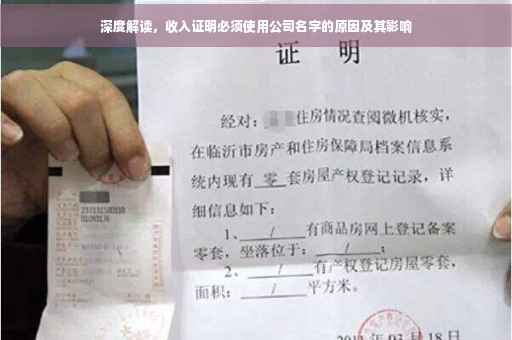 深度解读，收入证明必须使用公司名字的原因及其影响
证 明
经对：住房情况查阅微机核实，
在临沂市房产和住房保障局档案信息系
统内现有 零 套房屋产权登记记录，详
细信息如下：
1、 / 有商品房网上登记备案
零套，坐落位于： / ；
2、 / 有产权登记房屋零套，
面积： / 平方米。